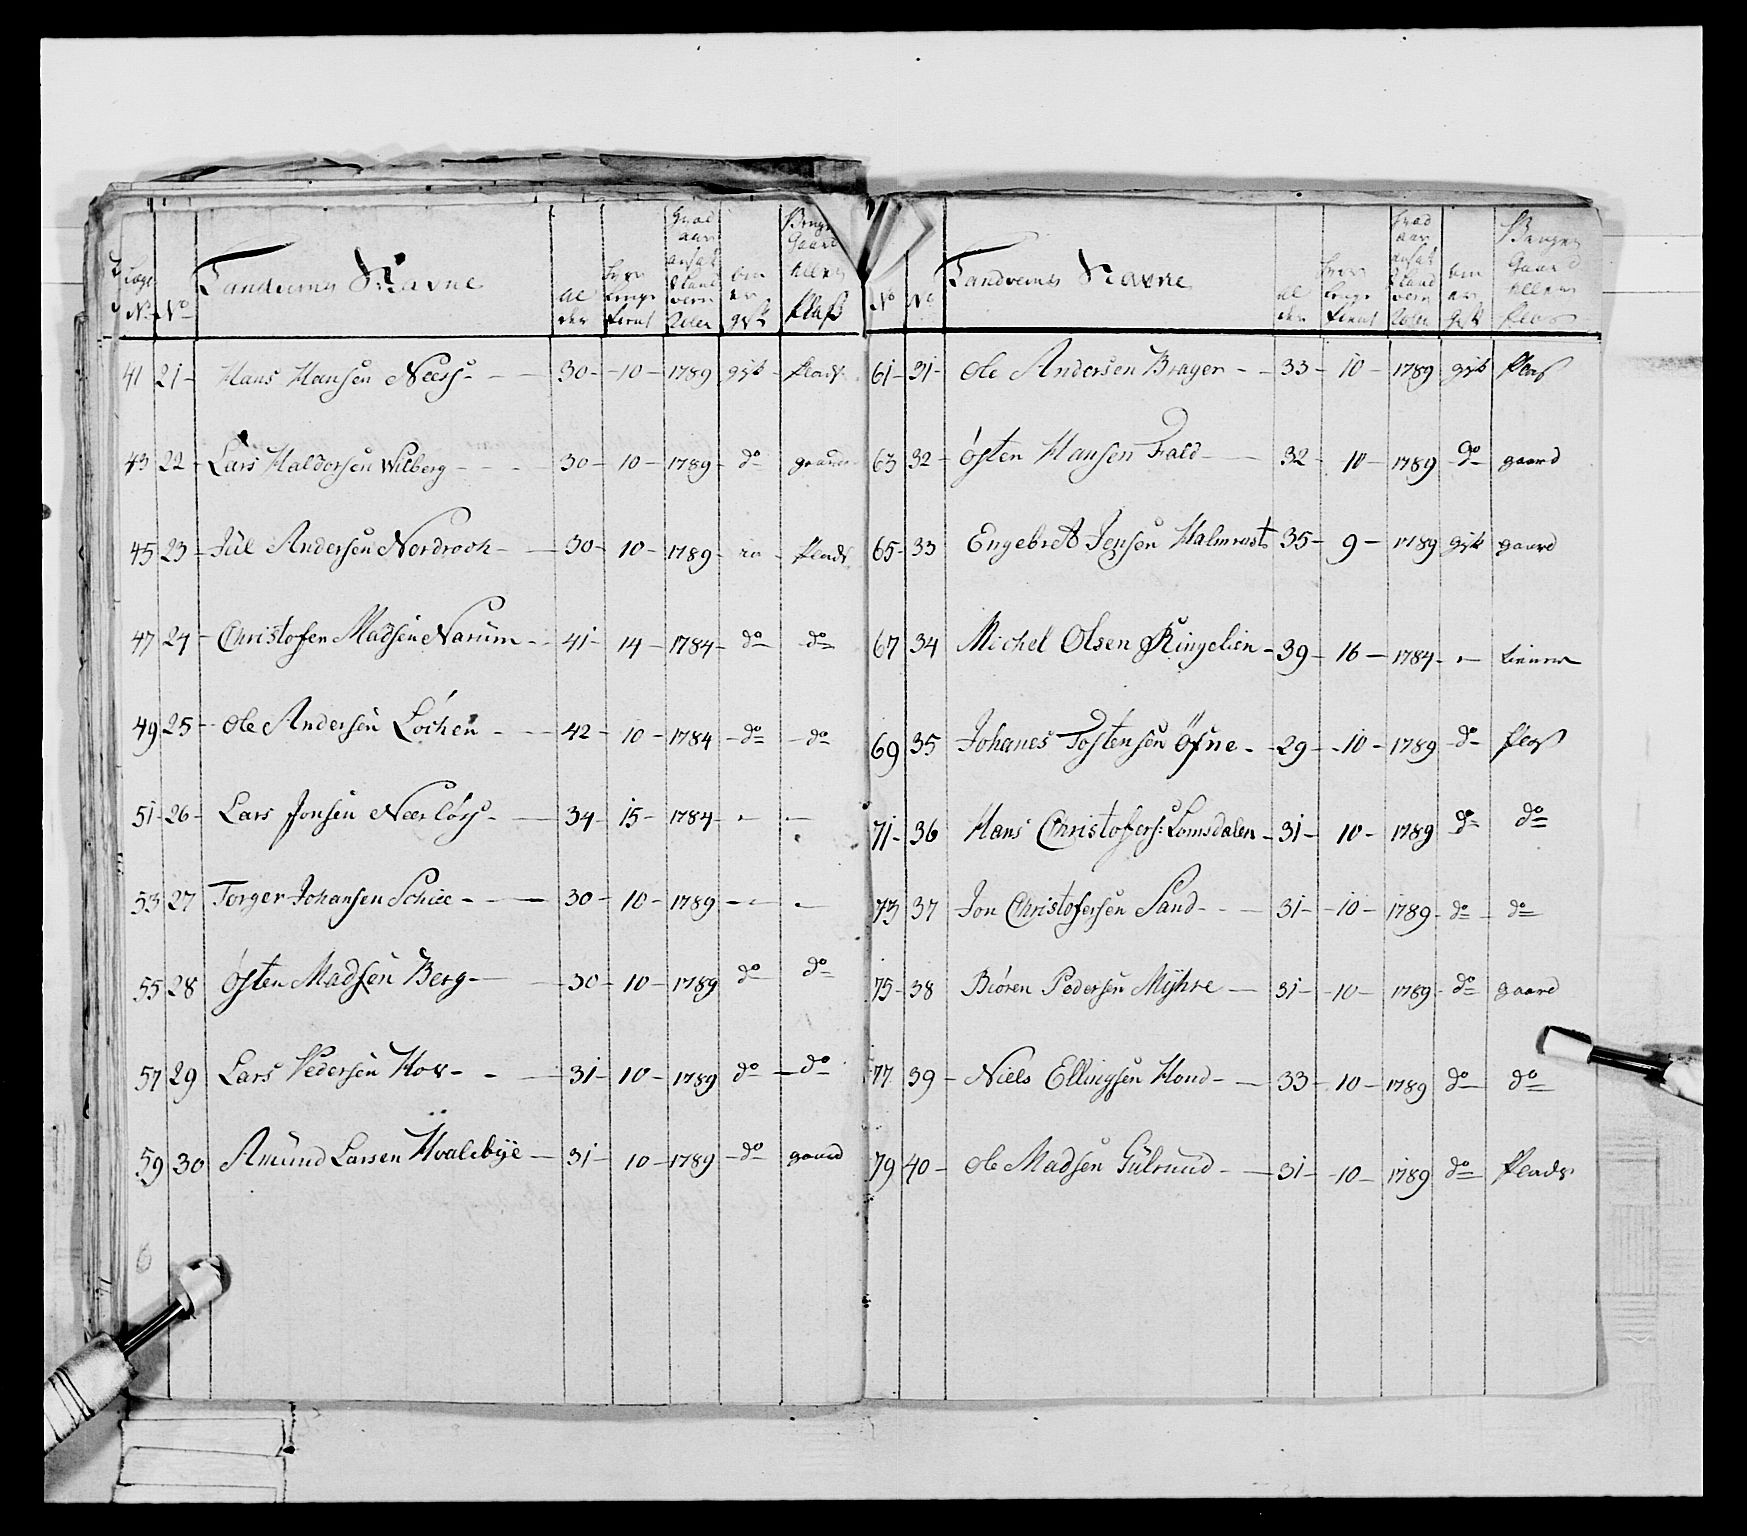 No No Landverns Navne Al der gift Plass
41 21 - Hans Hansen Neers - - 30 - 10 - 1789 gift - Plads
43 22 - Lars Haldorsen Wilberg - - - 30 - 10 - 1789 - do gaard
45 23 - Jül Andersen Nordrook - - 30 - 10 - 1789 - - Plads
47 24 - Christofer Madsen Narüm - 41 - 14 - 1784 - do - do
49 25 - Ole Andersen Löchen - - 42 - 10 - 1784 - do - do
51 - 26 - Lars Jonsen - - 34 - 15 - 1784 - - -
53 27 Torger Johansen - - 30 - 10 - 1789 - - -
55 28 Østen Madsen Berg - - 30 - 10 - 1789 do do
57 29 Lars Pedersen - - 31 - 10 - 1789 do - do
59 30 Amünd Larsen Hvalebÿe - 31 - 10 - 1789 - do - gaard
6
No No Landverns Navne Al der Om er gift Bruger Gaard eller Plas
61 - 31 - Ole Andersen Brager - - 33 - 10 - 1789 gift Plass
63 32 - Østen Hansen Fald - - 32 - 10 - 1789 - do gaard
65 - 33 Engebret Jensen Halmrast 35 - 9 - 1789 gift gaard
67 34 Michel Olsen Ringelien - 39 - 16 - 1784 - -
69 35 Johanes Tostensen Öfne - - 29 - 10 - 1789 - do - Plass
71 - 36 Hans Christofers: Lomsdalen - 31 - 10 - 1789 do do
73 37 Jon Christofersen Sand - - 31 - 10 - 1789 - do - do
75 - 38 Biøren Pedersen Mÿhre - 31 - 10 - 1789 - do gaard
77 39 - Niels Ellingsen Hond - - 33 - 10 - 1789 do do
79 40 - Ole Madsen Gülrund - - 31 - 10 - 1789 do Plads